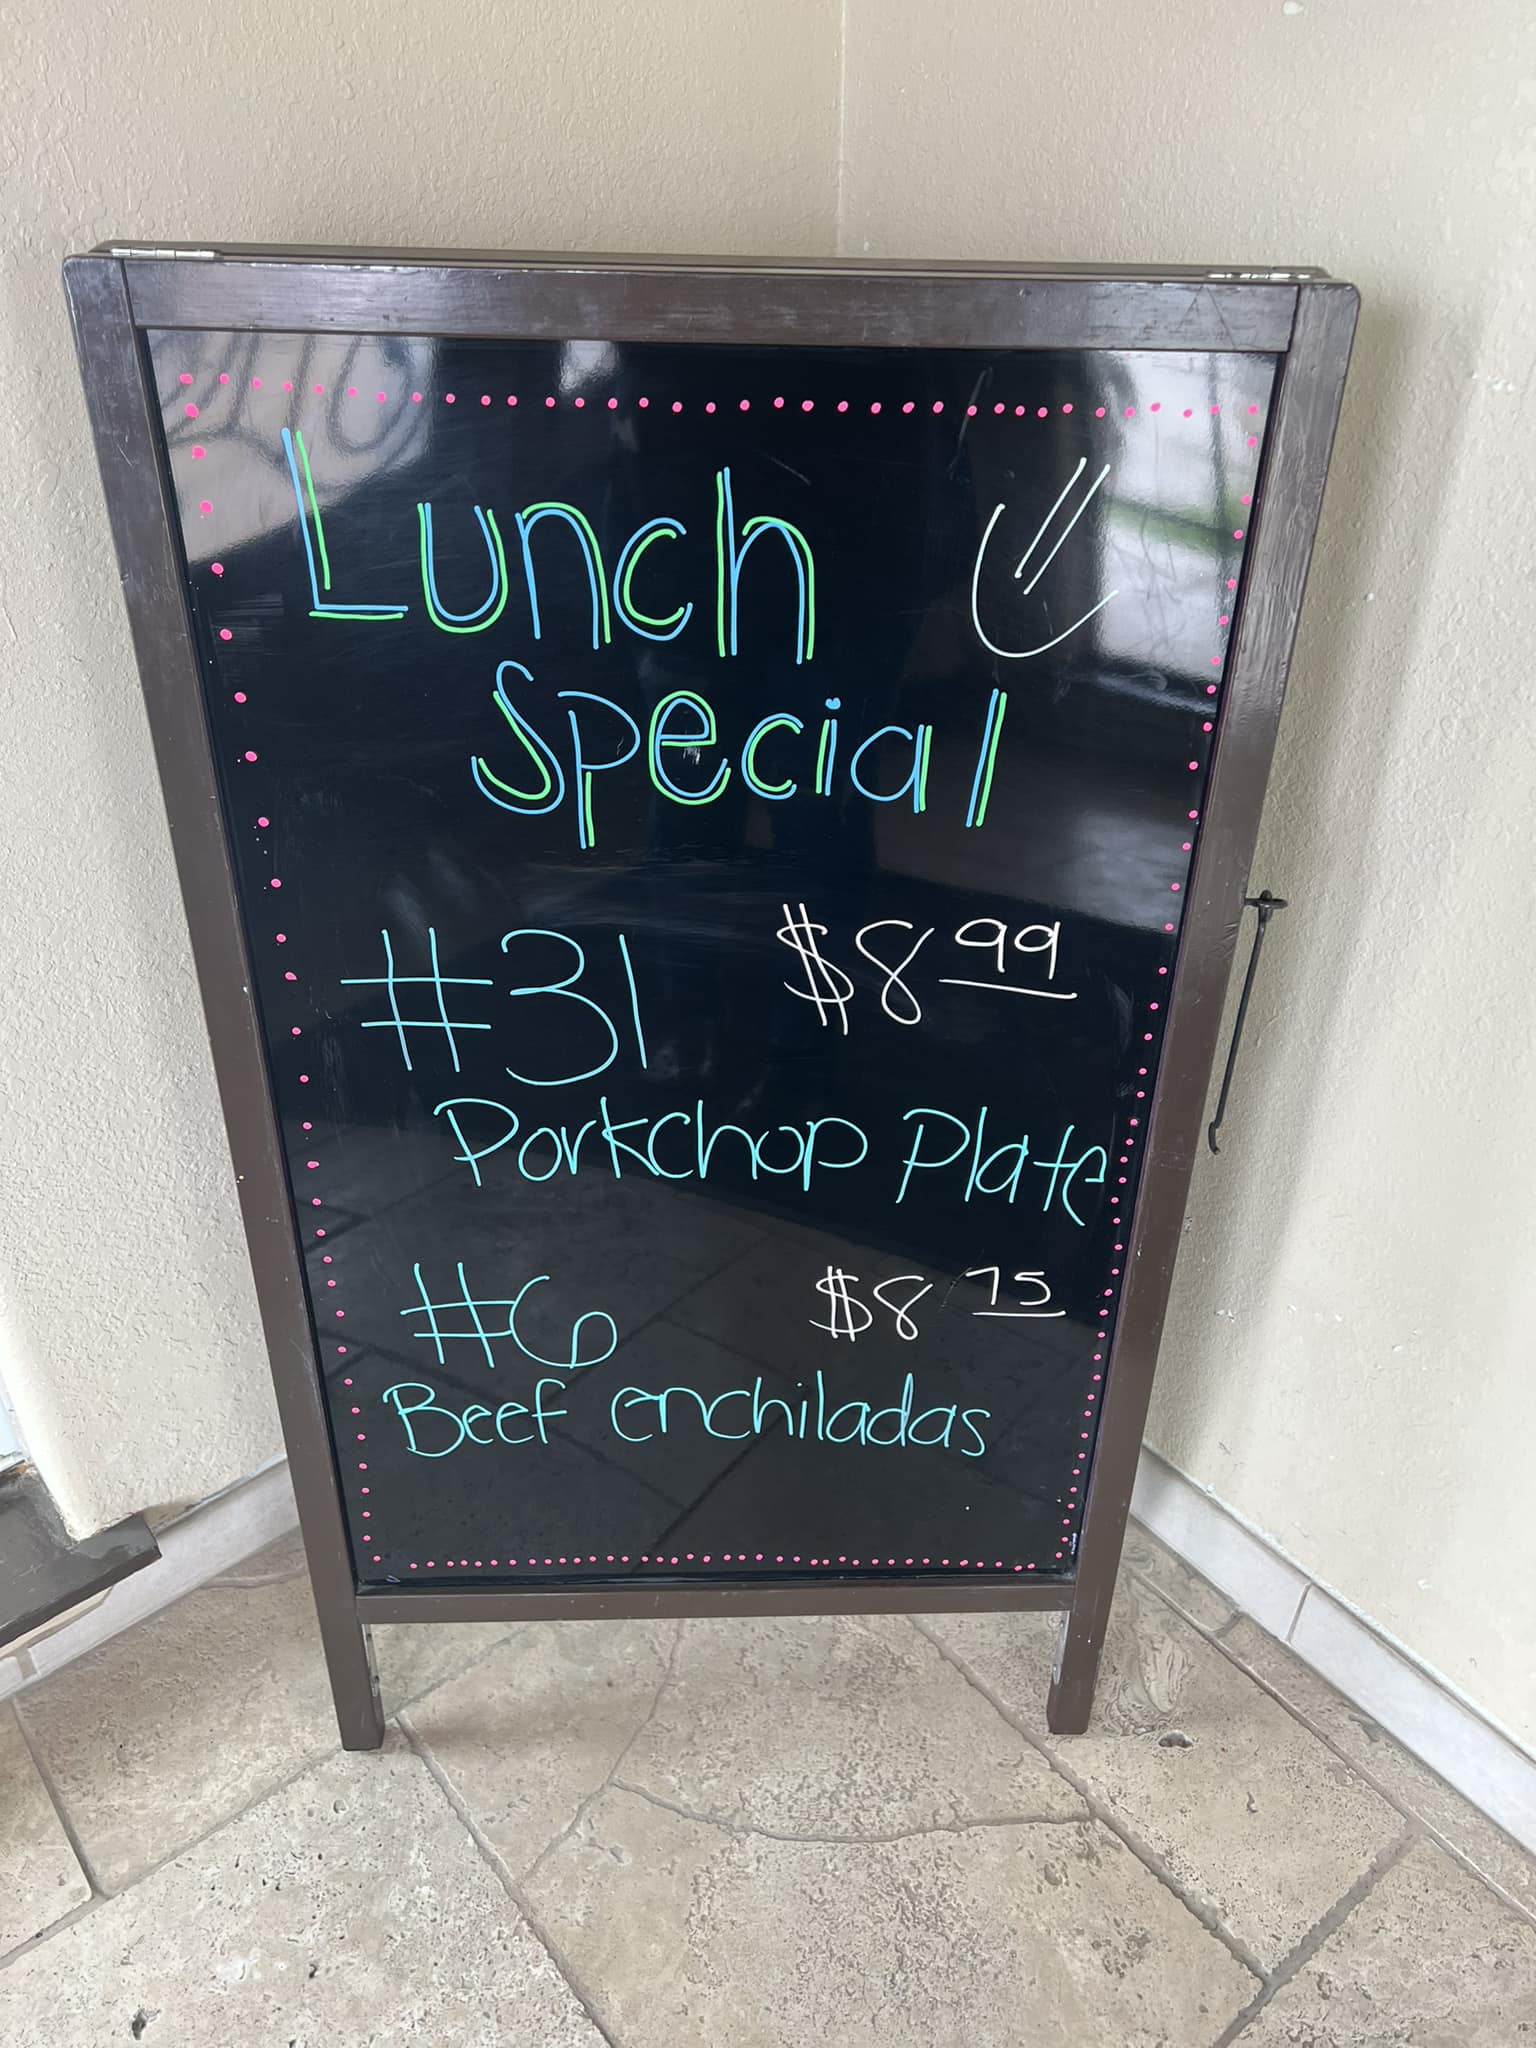 Lunch
Special
#31 $8 99
Porkchop Plate
#6 $8 75
Beef enchiladas